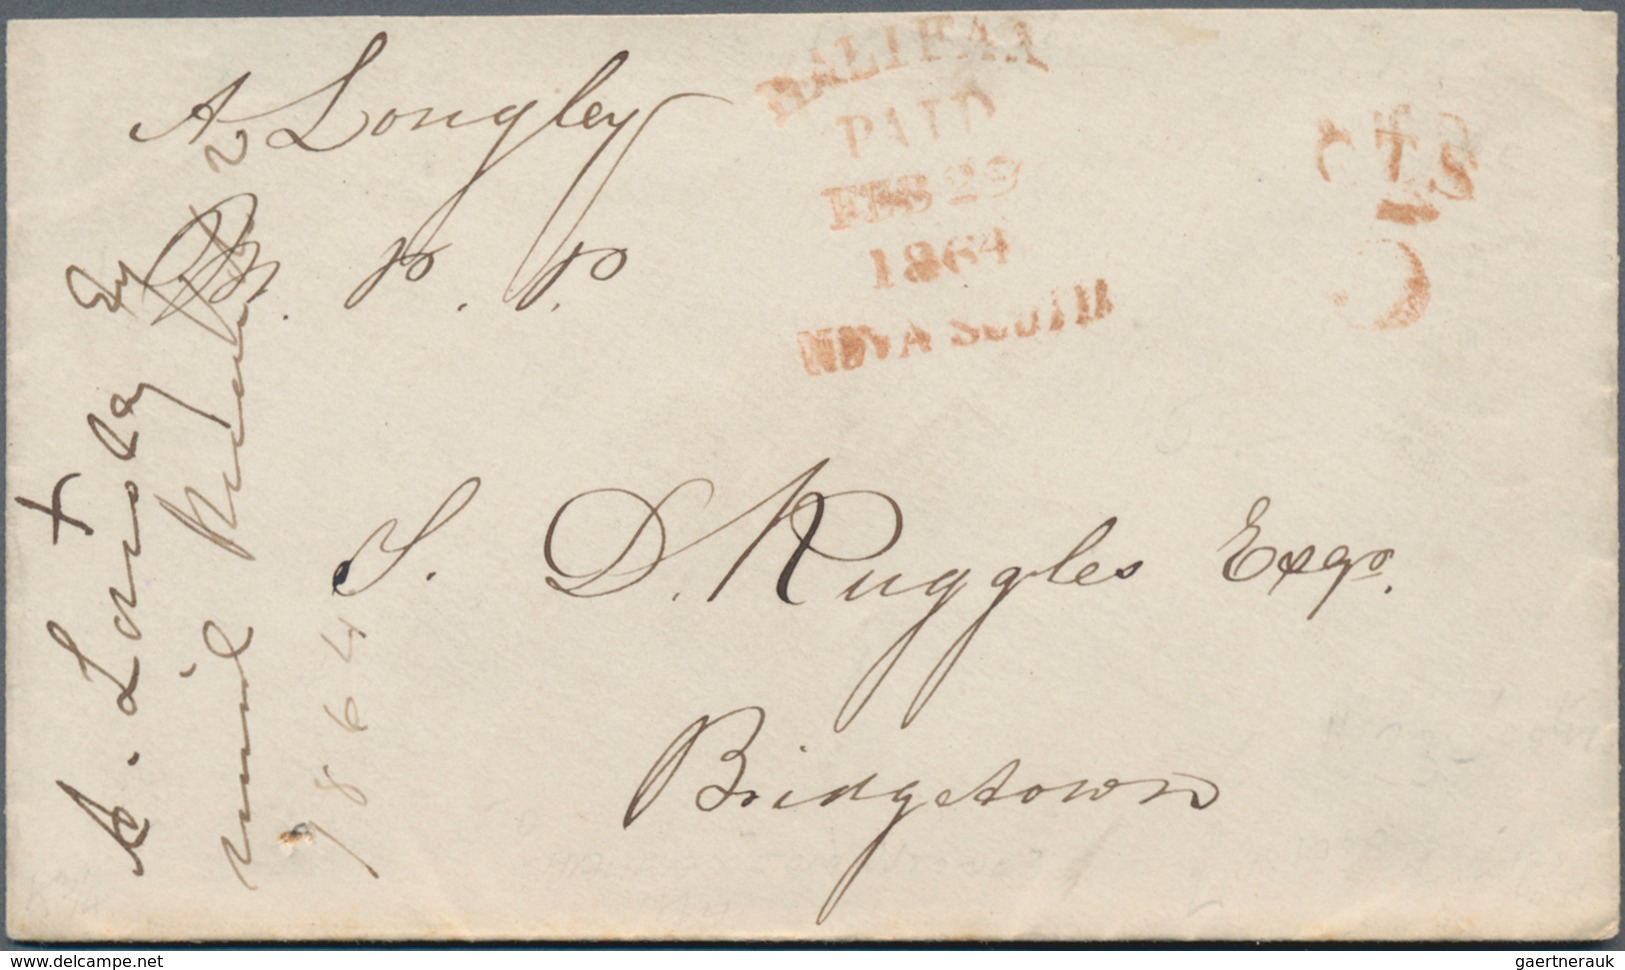 A Longley
M. P. P.
HALIFAX
PAID
FEB 29
1864
NOVA SCOTIA
CTS
5
S. D. Ruggles Esqr.
Bridgetown
A. Longley Esq
1864
www.delcampe.net
gaertnerauk